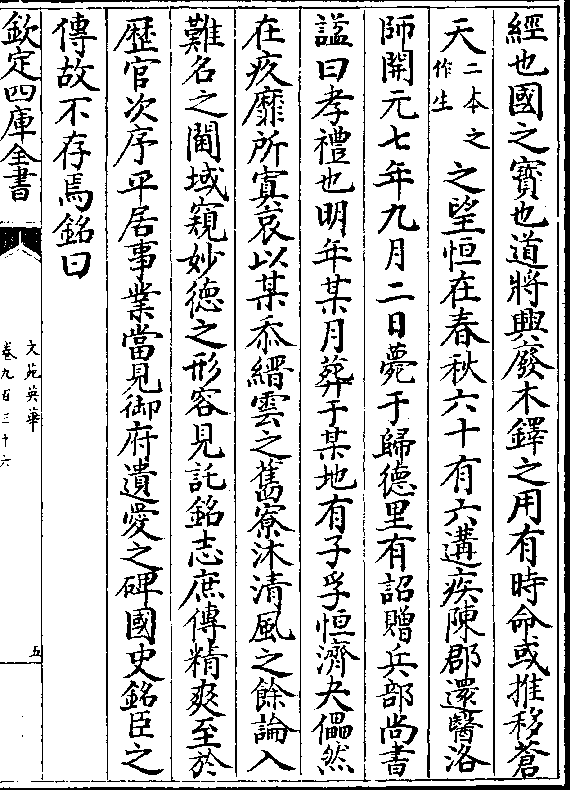 經也國之寶也道將興廢木鐸之用有時命或推移蒼
天二本之作生之望恒在春秋六十有六遘疾陳郡還醫洛
師開元七年九月二日薨于歸德里有詔贈兵部尚書
諡曰孝禮也明年某月葬于某地有子孚恒濟夬儡然
在疚靡所寘哀以某忝縉雲之舊寮沐清風之餘論入
難名之閫域窺妙德之形容見託銘志庶傳精爽至於
歷官次序平居事業當見御府遺愛之碑國史銘臣之
傳故不存焉銘曰
欽定四庫全書
文苑英華
卷九百三十六
五